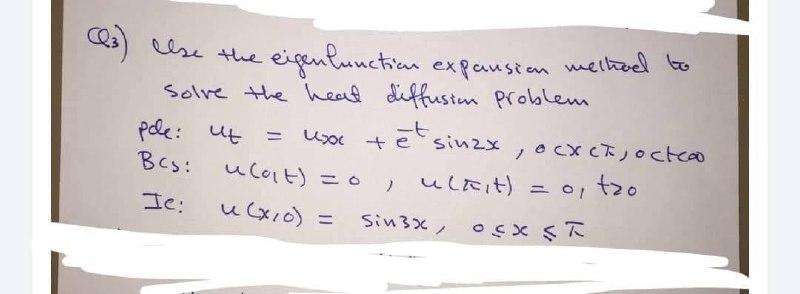 Q3) Use the eigenfunction expansion method to
solve the heat diffusion problem
pde: ut = uxx + e^-t sin2x, 0<x<π, 0<t<∞
BCs: u(0,t) = 0, u(π,t) = 0, t>0
Ic: u(x,0) = sin3x, 0≤x≤π